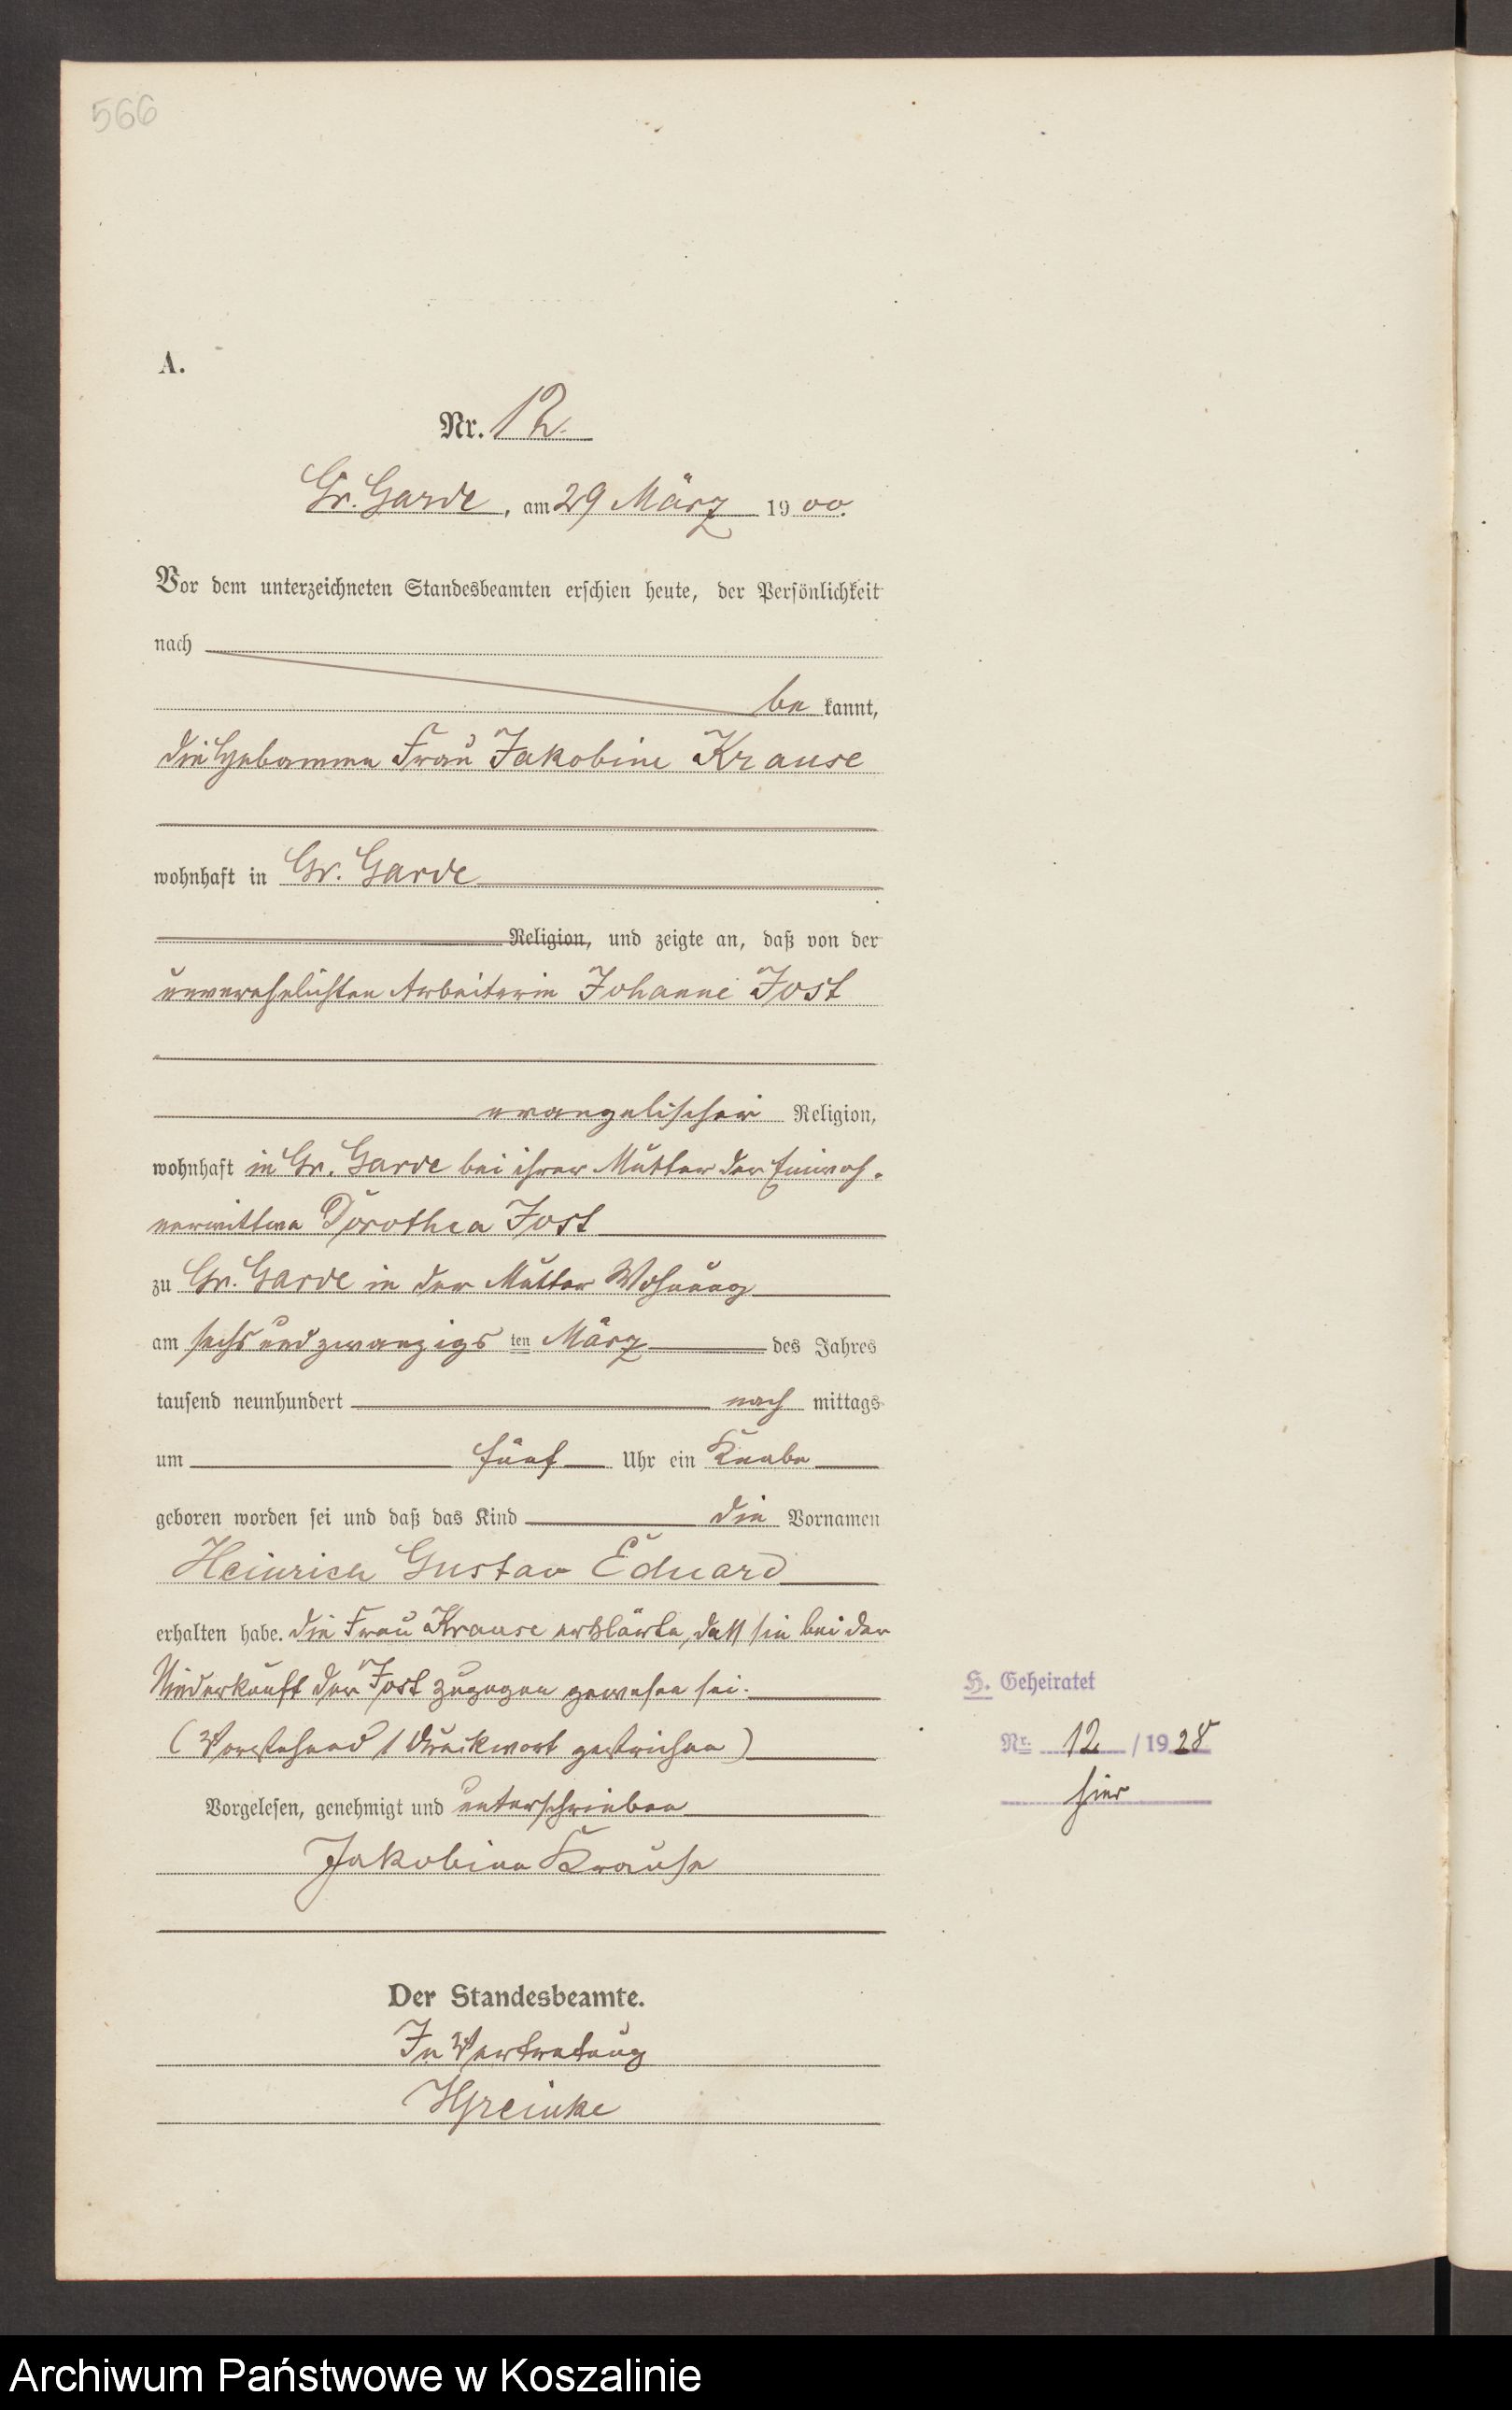 566
A.
Nr. 12.
Gr. Garde, am 29 März 1900.
Vor dem unterzeichneten Standesbeamten erschien heute, der Persönlichkeit
nach
be kannt,
die Hebamme Frau Jakobine Krause
wohnhaft in Gr. Garde
Religion, und zeigte an, daß von der
unverehelichten Arbeiterin Johanne Jost
evangelischer Religion,
wohnhaft in Gr. Garde bei ihrer Mutter der Einwoh-
nerwittwe Dorothea Jost
zu Gr. Garde in der Mutter Wohnung
am sechsundzwanzigs ten März des Jahres
tausend neunhundert nach mittags
um fünf Uhr ein Knabe
geboren worden sei und daß das Kind die Vornamen
Heinrich Gustav Eduard
erhalten habe. Die Frau Krause erklärte, daß sie bei der
Niederkunft der Jost zugegen gewesen sei.
(Vorstehend 1 Druckwort gestrichen)
Vorgelesen, genehmigt und unterschrieben
Jakobine Krause
Der Standesbeamte.
In Vertretung
HGreinke
H. Geheiratet
Nr. 12 / 1928
hier
Archiwum Państwowe w Koszalinie